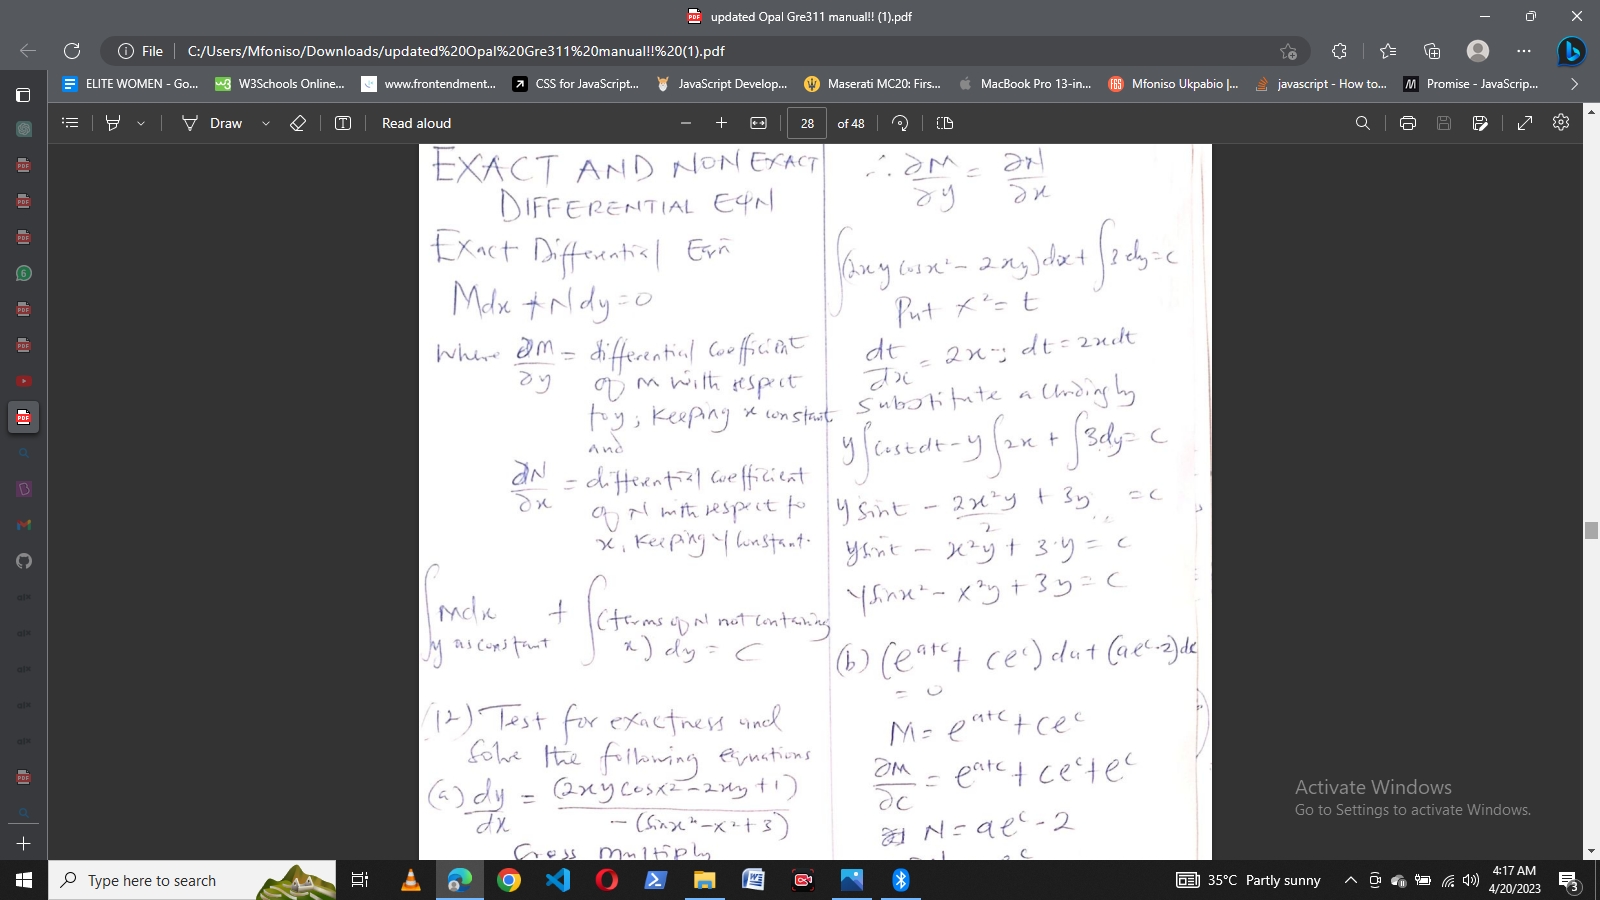 updated Opal Gre311 manual!! (1).pdf
File
C:/Users/Mfoniso/Downloads/updated%20Opal%20Gre311%20manual!!%20(1).pdf
ELITE WOMEN - Go...
W3Schools Online...
www.frontendment...
CSS for JavaScript...
JavaScript Develop...
Maserati MC20: Firs...
MacBook Pro 13-in...
Mfoniso Ukpabio |...
javascript - How to...
Promise - JavaScrip...
Draw
Read aloud
28 of 48
EXACT AND NON EXACT
DIFFERENTIAL EQN
Exact Differential Eqn
Mdx + Ndy = 0
Where ∂M/∂y = differential coefficient
of M with respect
to y, keeping x constant
and
∂N/∂x = differential coefficient
of N with respect to
x, keeping y constant.
∫Mdx + ∫(terms of N not containing
y as constant x) dy = C
(12) Test for exactness and
Solve the following equations
(a) dy/dx = (2xy cosx2 - 2xy + 1)
/ -(sinx² - x² + 3)
Cross multiply
∴ ∂M/∂y = ∂N/∂x
∫(2xy cosx² - 2xy)dx + ∫3dy = c
Put x² = t
dt/dx = 2x; dt = 2xdt
Substitute accordingly
y∫cost dt - y∫2x + ∫3dy = c
y sint - 2x²y/2 + 3y = c
y sint - x²y + 3·y = c
y sinx² - x²y + 3y = c
(b) (e^(a+c) + ce^c) da + (ae^c - 2)dc
= 0
M = e^(a+c) + ce^c
∂M/∂c = e^(a+c) + ce^c + e^c
N = ae^c - 2
Activate Windows
Go to Settings to activate Windows.
Type here to search
35°C Partly sunny
4:17 AM
4/20/2023
3